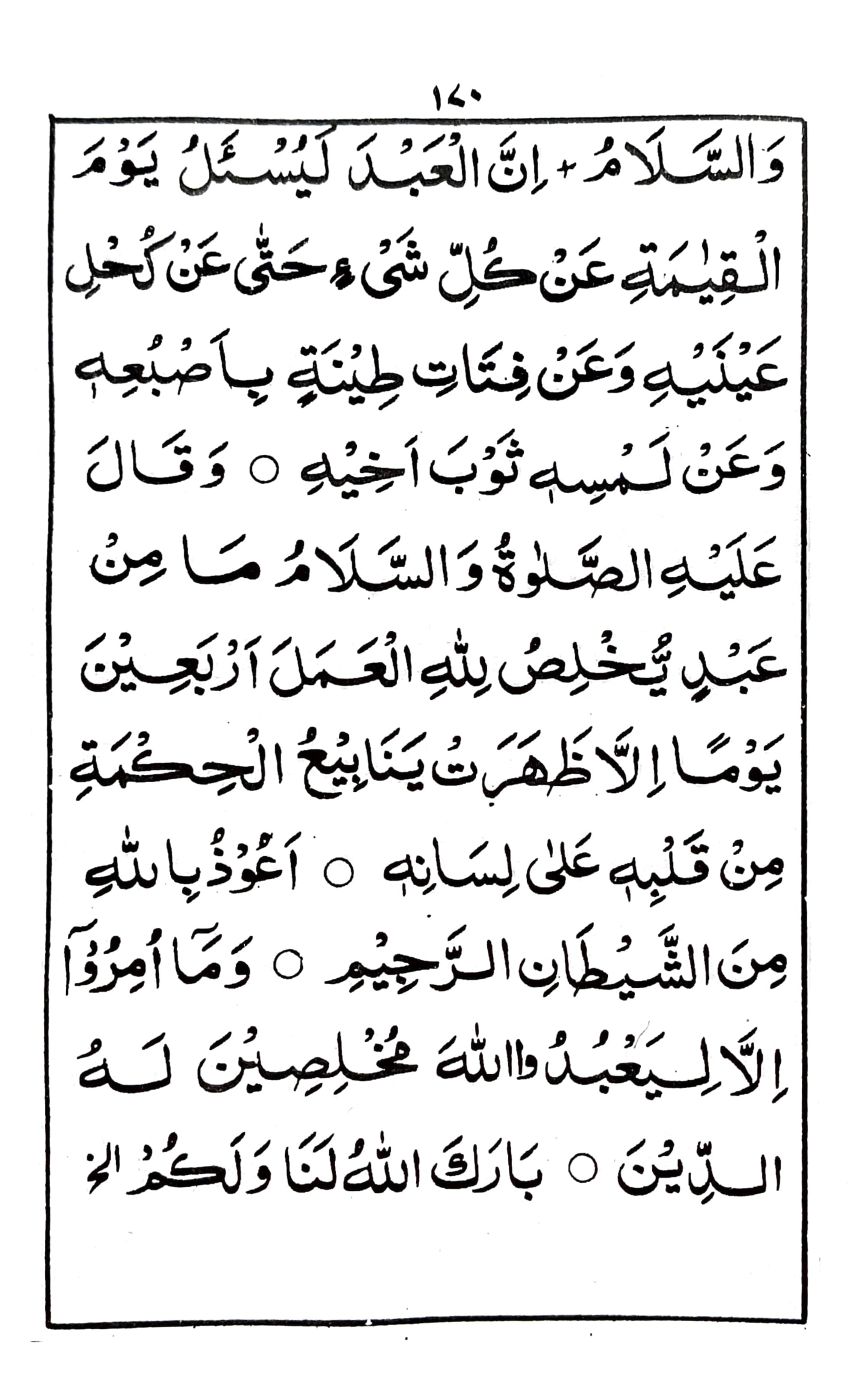 ١٧٠
وَالسَّلَامُ + اِنَّ الْعَبْدَ لَيُسْئَلُ يَوْمَ
الْقِيٰمَةِ عَنْ كُلِّ شَیْءٍ حَتّٰى عَنْ كُحْلِ
عَيْنَيْهِ وَعَنْ فِتَاتِ طِيْنَةٍ بِاَصْبُعِهٖ
وَعَنْ لَمْسِهٖ ثَوْبَ اَخِيْهِ ○ وَقَالَ
عَلَيْهِ الصَّلٰوةُ وَالسَّلَامُ مَا مِنْ
عَبْدٍ يُّخْلِصُ لِلّٰهِ الْعَمَلَ اَرْبَعِيْنَ
يَوْمًا اِلَّا ظَهَرَتْ يَنَابِيْعُ الْحِكْمَةِ
مِنْ قَلْبِهٖ عَلٰى لِسَانِهٖ ○ اَعُوْذُ بِاللّٰهِ
مِنَ الشَّيْطَانِ الرَّجِيْمِ ○ وَمَآ اُمِرُوْٓا
اِلَّا لِيَعْبُدُوا اللّٰهَ مُخْلِصِيْنَ لَهُ
الدِّيْنَ ○ بَارَكَ اللّٰهُ لَنَا وَلَكُمْ الخ